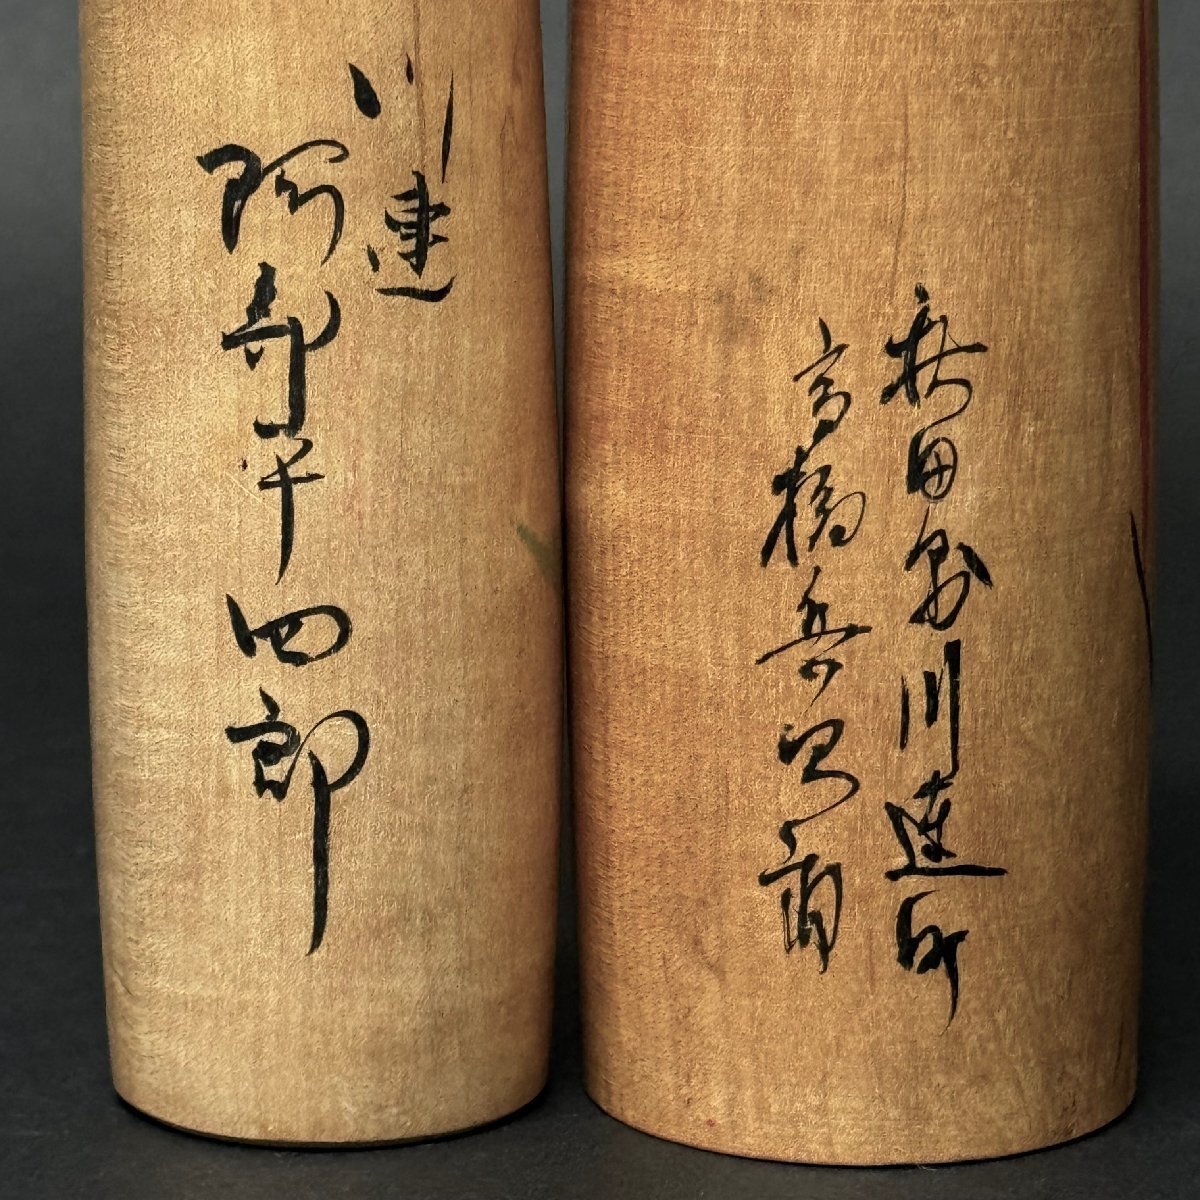 川連
阿部平四郎
秋田県川連町
高橋兵治郎